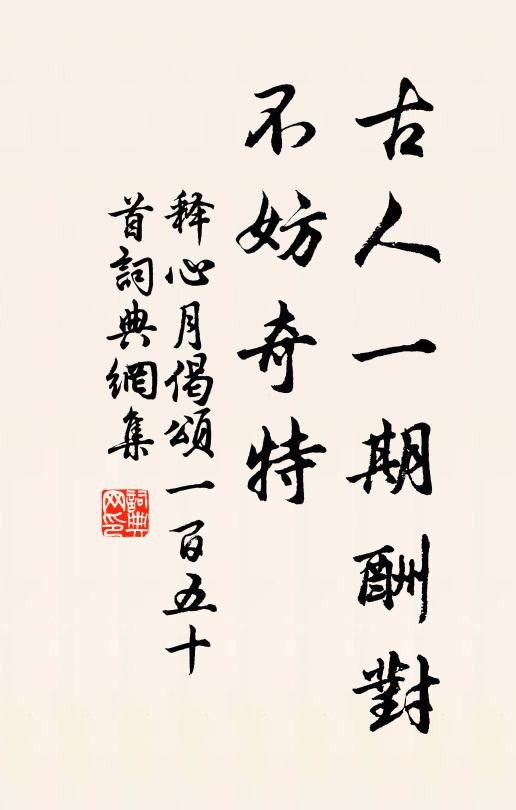 古人一期酬對
不妨奇特
释心月偈頌一百五十
首詞典網集
詞典
网印